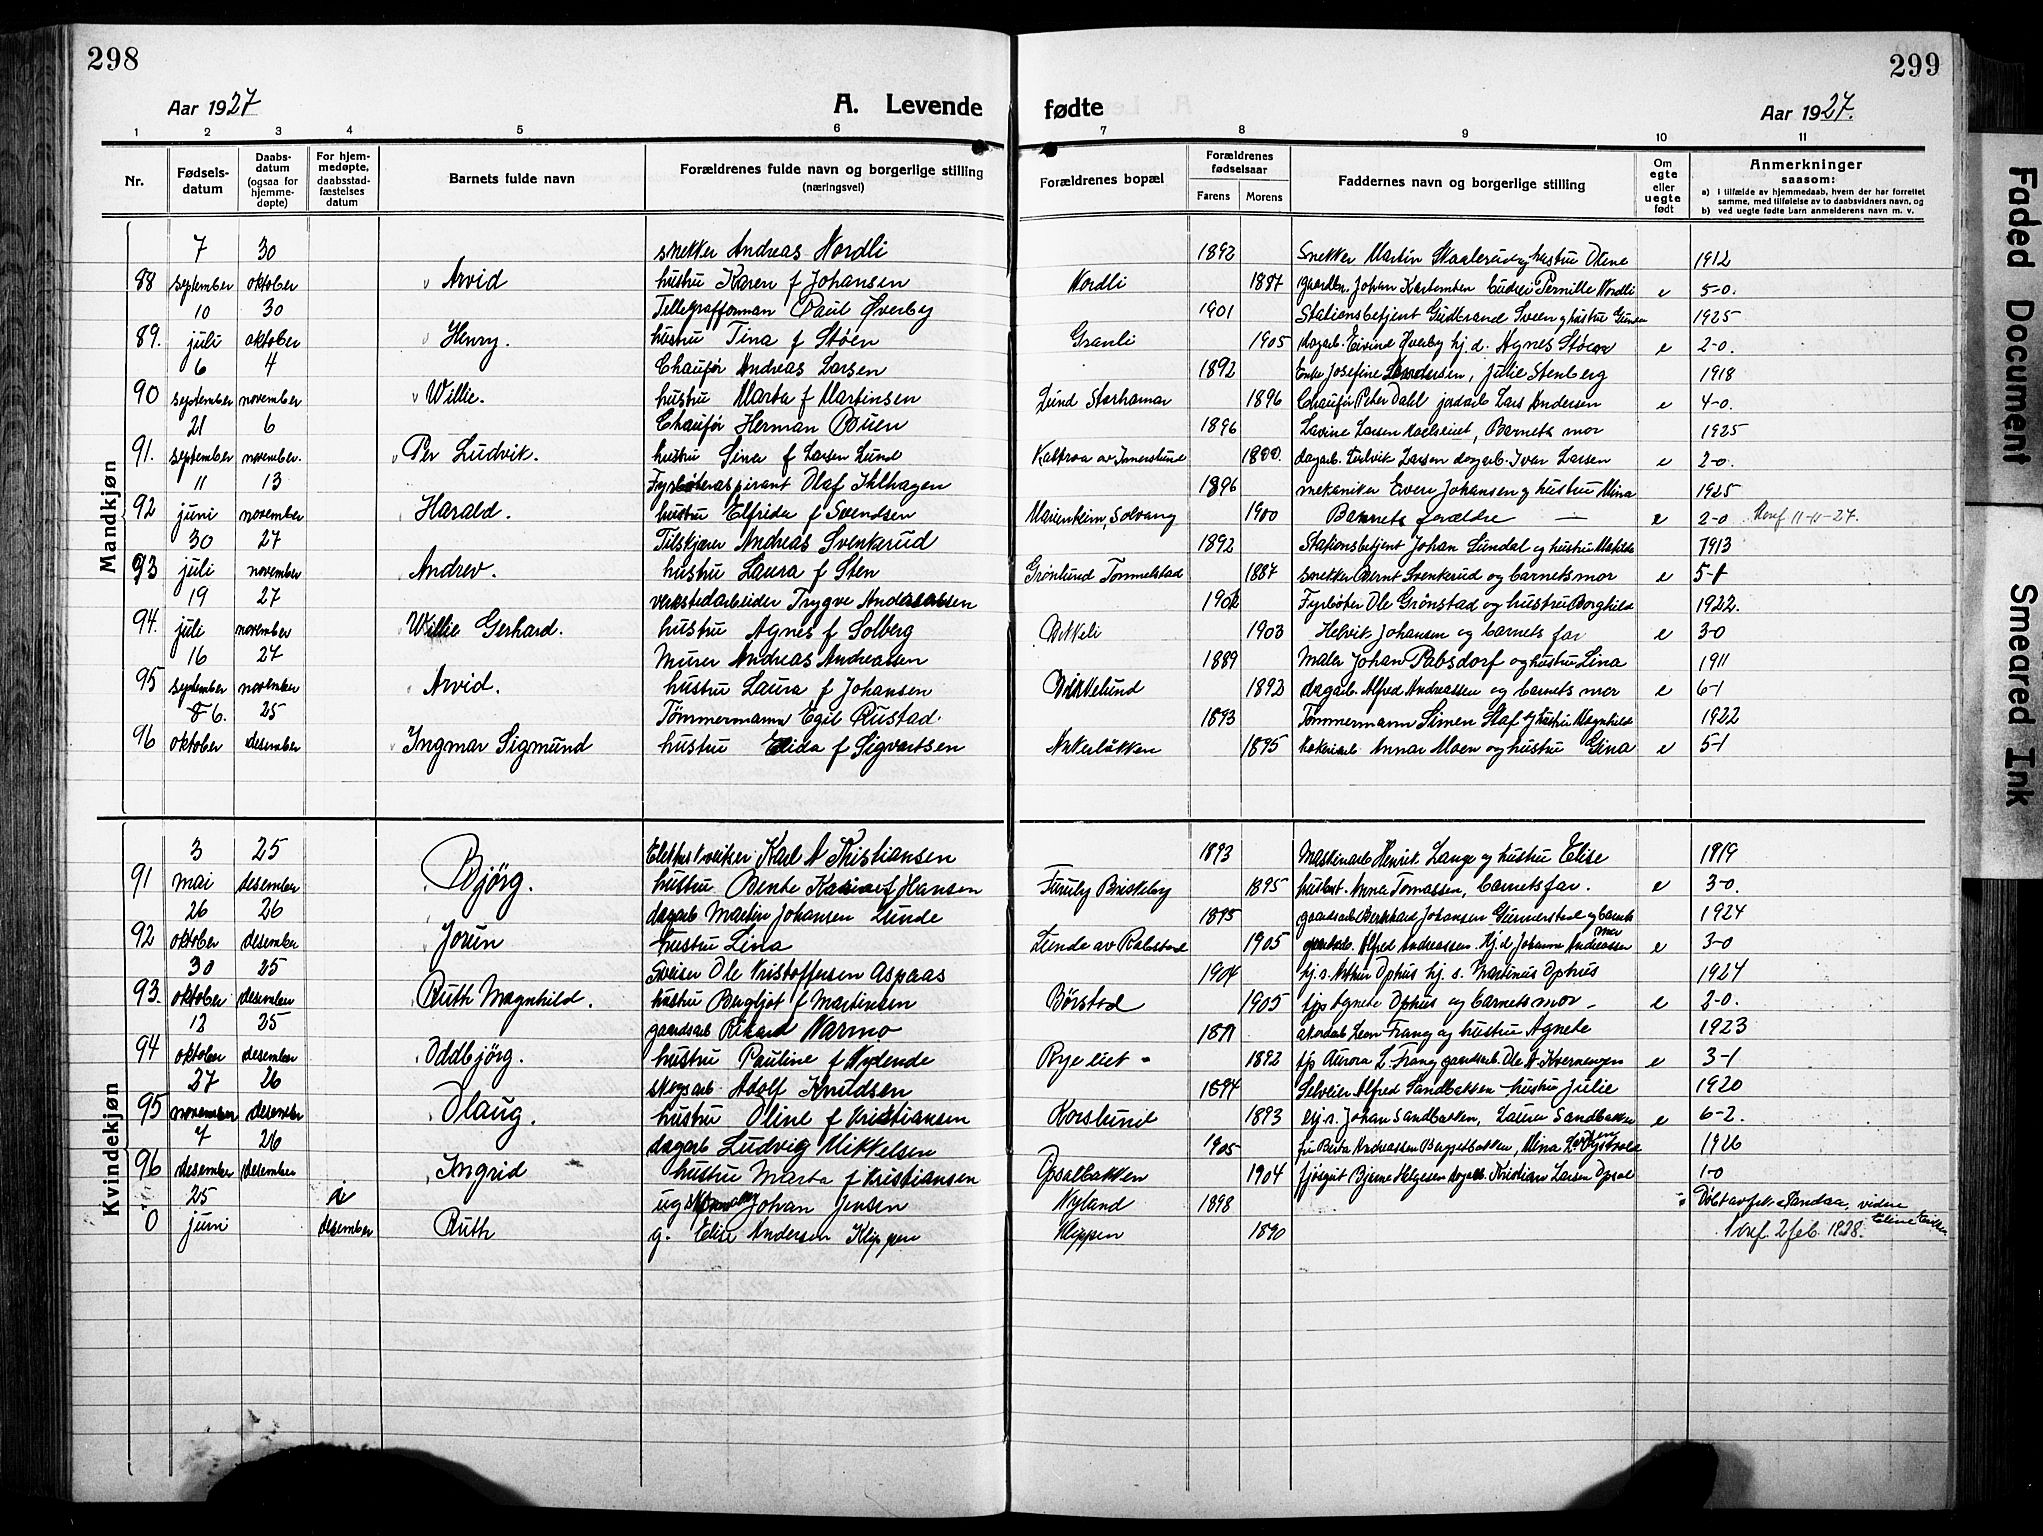 298
299
Aar 1927
A. Levende fødte
Aar 1927.
1 2 3 4 5 6 7 8 9 10 11
Nr.
Fødsels-datum
Daabs-datum (ogsaa for hjemme-døpte)
For hjem-medøpte, daabsstad-fæstelses datum
Barnets fulde navn
Forældrenes fulde navn og borgerlige stilling (næringsvei)
Forældrenes bopæl
Forældrenes fødselsaar
Farens Morens
Faddernes navn og borgerlige stilling
Om egte eller uegte født
Anmerkninger saasom:
a) i tilfælde av hjemmedaab, hvem der har forrettet samme, med tilføielse av to daabsvidners navn, og
b) ved uegte fødte barn anmelderens navn m. v.
Mandkjøn
7 30 snekker Andreas Nordli 1892 Snekker Martin hustru Olene 1912
88 september oktober Arvid hustru Karen f Johansen Nordli 1887 Johan Pernille Nordli e 5-0.
10 30 Tellegrafforman Paul Øverby 1901 Stationsbetjent Gudbrand Sveen og hustru 1925
89. juli oktober Henry. hustru Tina f Støen Granli 1905 dagarb. Eivind Øverby hj. d. Agnes Støen e 2-0.
6 4 Chaufør Andreas Larsen 1892 Enke Josefine Julie Stenberg 1918
90 september november Willie. hustru Marta f Martinsen Lund Storhamar 1896 Chaufør Peter Dahl jordarb Lars Andersen e 4-0.
21 6 Chaufør Herman Buen 1896 Lavine Larsen Barnets mor 1925
91. september november. Per Ludvik. hustru Sina f Larsen Lund av Imerslund dagarb. Larsen dagarb. Ivar Larsen e 2-0.
11 13 Olaf Ihlhagen 1896 mekaniker Johansen og hustru Mina 1925
92 juni november Harald. hustru Elfrida f Svendsen Marienheim, Solvang 1900 Barnets forældre — e 2-0 11-11-27.
30 27 Tilskjærer Andreas Svenkerud 1892 Stationsbetjent Johan Lundal og hustru Matilde 1913
93 juli november Andrev. hustru Laura f Sten Grønlund Tommelstad 1887 snekker Bernt Svenkerud og barnets mor e 5-1
19 27 verkstedarbeider Trygve Fyrbøter Ole Grønstad og hustru Borghild 1922.
94. juli november Willie Gerhard. hustru Agnes f Solberg 1903 Helvik Johansen og barnets far e 3-0
16 27 Murer Andreas Andreassen 1889 Maler Johan Rabsdorf og hustru Lina 1911
95 september november Arvid. hustru Laura f Johansen Birkelund 1892 dagarb. Alfred Andreassen og barnets mor e 6-1
8 6. 25 Tømmermann Egil Rustad. 1893 Tømmermann Simen Staf og hustru Magnhild 1922
96 oktober desember Ingmar Sigmund hustru Elida f Sigvartsen Akerløkken 1895 Annar Moen og hustru Gina e 5-1
Kvindekjøn
3 25 Karl A Kristiansen 1893 Maskinarb Henrik Lange og hustru Elise 1919
91 mai desember Bjørg. hustru Bente f Hansen Furuly Briskeby 1895 Anna Tomassen, barnets far. e 3-0.
26 26 dagarb Martin Johansen Lunde 1895 gaardsarb Johansen og barnets mor 1924
92 oktober desember Jorun hustru Lina Lunde av 1905 Alfred Andreassen. Hj. d. Johanne Andreassen e 3-0
30 25 Sveiser Ole Kristoffersen Aspaas 1904 hj. s. Arthur Ophus hj. s. Martinus Ophus 1924
93. oktober desember Ruth Magnhild. hustru Bergljot f Martinsen Børstad 1905 tjp Agnete Ophus og barnets mor – e 2-0.
12 25 gaardsarb Rikard Narmo Leon Frang og hustru Agnete 1923
94 oktober desember Oddbjørg. hustru Pauline f Nylende 1892 tjp Aurora L. Frang gaardsarb. Ole N. Kvernengen e 3-1
27 26 skogsarb Adolf Knutdsen 1894 Selveier Alfred Sandbakken – hustru Julie 1920
95 november desember Olaug. hustru Oline f Kristiansen Korslund 1893 Johan Sandbakken, Laura Sandbakken e 6-2.
7 26 dagarb Ludvig Mikkelsen 1905 fru Berta Andreassen Mina 1926
96 desember desember Ingrid hustru Marta f Kristiansen Opsalbakken 1904 fjøsgut Bjarne Helgesen dagarb. Kristian Larsen Opsal 1-0
25 i ug Johan Jensen Nyland 1898
0 juni desember Ruth g. Elise Andersen Klippen Klippen 1890 2 feb. 1928.
Faded Document
Smeared Ink